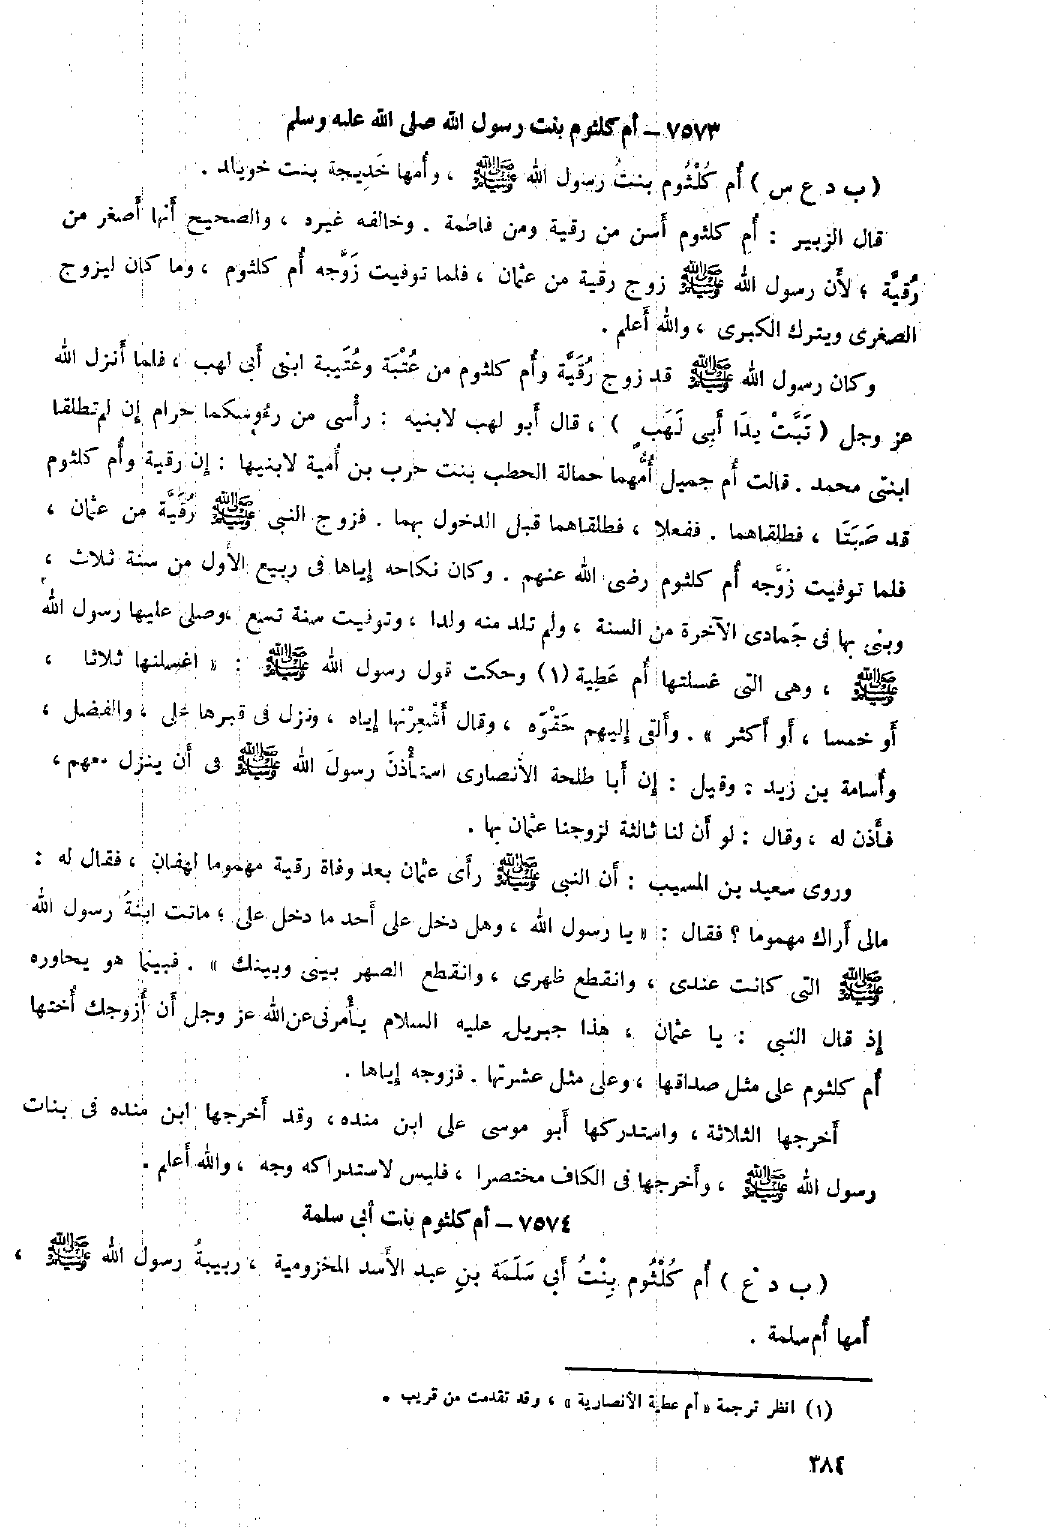 ٧٥٧٣ – أم كلثوم بنت رسول الله صلى الله عليه وسلم
( ب د ع س ) أُم كُلْثُوم بنتُ رسول الله ﷺ ، وأُمها خَدِيجة بنت خويلد .
قال الزبير : أُم كلثوم أسن من رقية ومن فاطمة . وخالفه غيره ، والصحيح أَنها أَصغر من
رُقيَّة ؛ لأَن رسول الله ﷺ زوج رقية من عثمان ، فلما توفيت زَوَّجه أُم كلثوم ، وما كان ليزوج
الصغرى ويترك الكبرى ، والله أَعلم .
وكان رسول الله ﷺ قد زوج رُقَيَّة وأُم كلثوم من عُتْبَة وعُتَيبة ابنى أَبى لهب ، فلما أَنزل الله
عز وجل ( تَبَّتْ يدَا أَبِى لَهَبٍ ) ، قال أَبو لهب لابنيه : رأْسى من رءُوسكما حرام إن لم تطلقا
ابنتى محمد . قالت أُم جميل أُمُّهما حمالة الحطب بنت حرب بن أُمية لابنيها : إن رقية وأُم كلثوم
قد صَبَتَا ، فطلقاهما . ففعلا ، فطلقاهما قبل الدخول بهما . فزوج النبى ﷺ رُقَيَّة من عثمان ،
فلما توفيت زَوَّجه أُم كلثوم رضى الله عنهم . وكان نكاحه إياها فى ربيع الأَول من سنة ثلاث ،
وبنى بها فى جَمادى الآخرة من السنة ، ولم تلد منه ولدا ، وتوفيت سنة تسع ، وصلى عليها رسول الله
ﷺ ، وهى التى غسلتها أُم عَطِية (١) وحكت قول رسول الله ﷺ : « اغسلنها ثلاثا ،
أَو خمسا ، أَو أَكثر » . وأَلقى إليهم حَقْوَه ، وقال أَشْعِرْنها إياه ، ونزل فى قبرها على ، والفضل ،
وأُسامة بن زيد : وقيل : إن أَبا طلحة الأَنصارى استأْذنَ رسولَ الله ﷺ فى أَن ينزل معهم ،
فأَذن له ، وقال : لو أَن لنا ثالثة لزوجنا عثمان بها .
وروى سعيد بن المسيب : أَن النبى ﷺ رأَى عثمان بعد وفاة رقية مهموما لهفان ، فقال له :
مالى أَراك مهموما ؟ فقال : « يا رسول الله ، وهل دخل على أَحد ما دخل على ؛ ماتت ابنةُ رسول الله
ﷺ التى كانت عندى ، وانقطع ظهرى ، وانقطع الصهر بينى وبينك » . فبينما هو يحاوره
إذ قال النبى : يا عثمان ، هذا جبريل عليه السلام يأْمرنى عن الله عز وجل أَن أُزوجك أُختها
أُم كلثوم على مثل صداقها ، وعلى مثل عشرتها . فزوجه إياها .
أَخرجها الثلاثة ، واستدركها أَبو موسى على ابن منده ، وقد أَخرجها ابن منده فى بنات
رسول الله ﷺ ، وأَخرجها فى الكاف مختصرا ، فليس لاستدراكه وجه ، والله أَعلم .
٧٥٧٤ – أم كلثوم بنت أبي سلمة
( ب د ع ) أُم كُلْثُوم بِنْتُ أَبي سَلَمَة بنِ عبد الأَسد المخزومية ، ربيبةُ رسول الله ﷺ ،
أُمها أُم سلمة .
(١) انظر ترجمة « أم عطية الأنصارية » ، وقد تقدمت من قريب .
٣٨٤